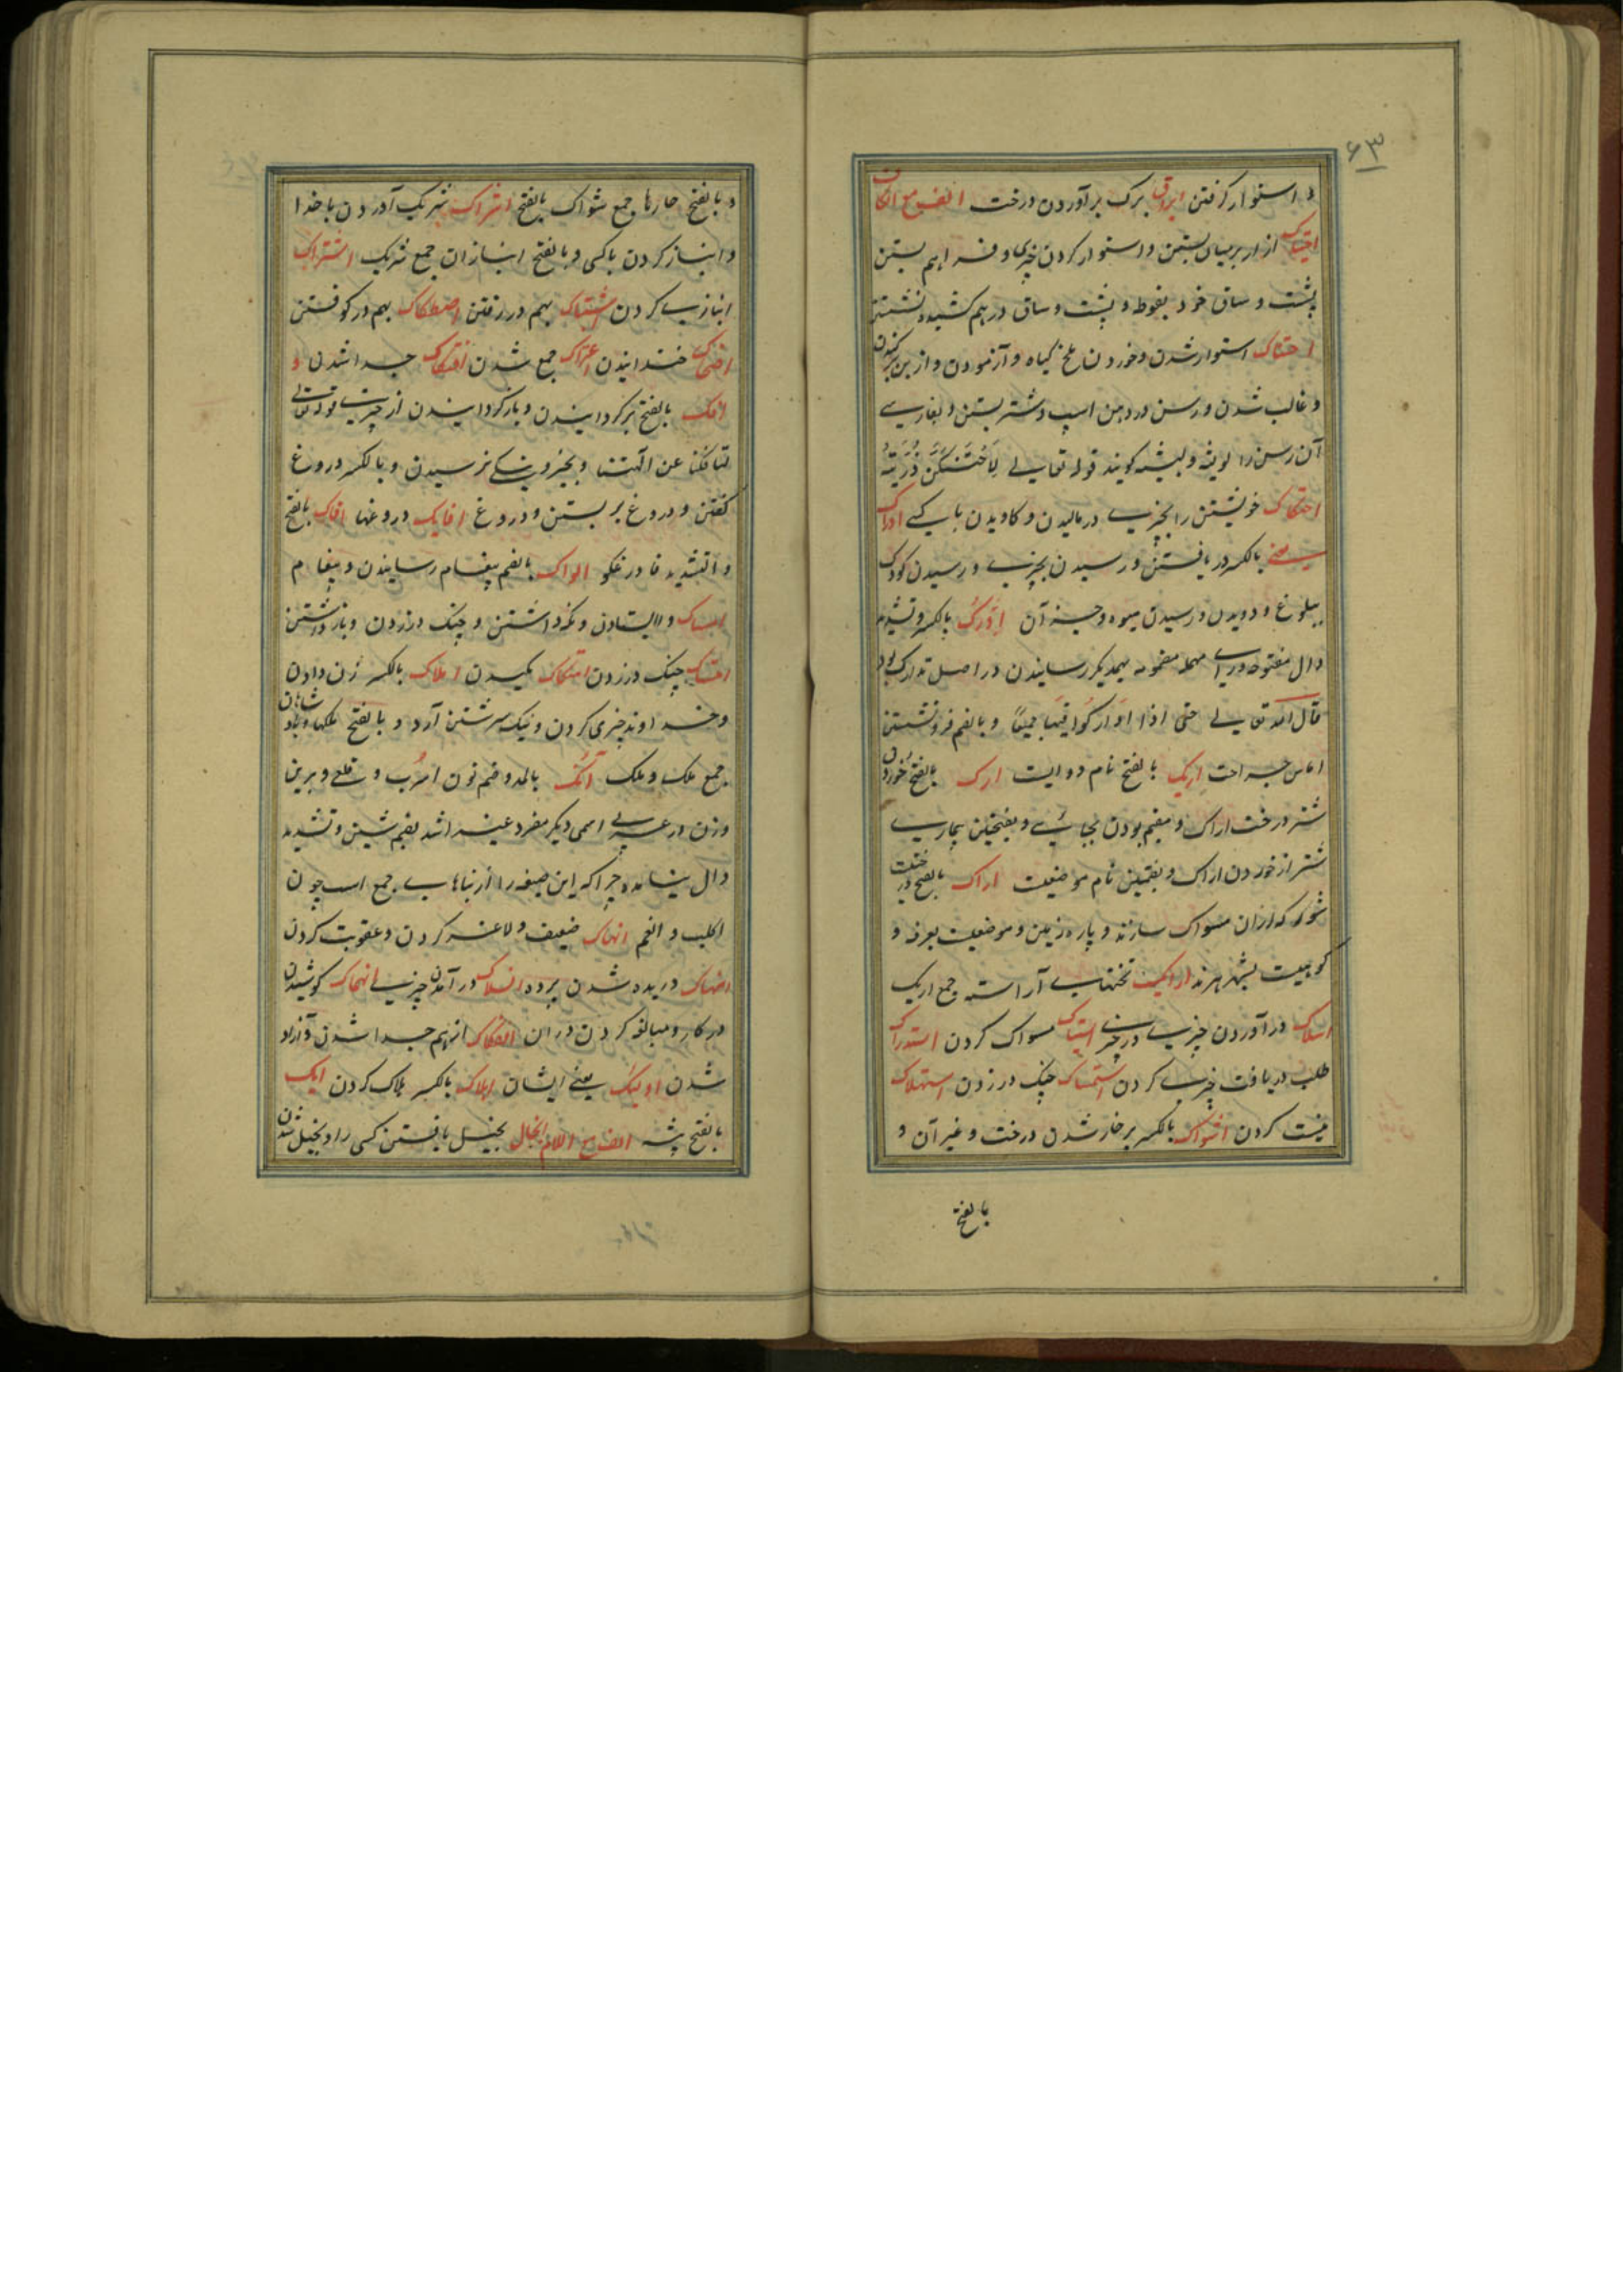 ۶۳
و استوار گرفتن ایراق برک برآوردن درخت الف مع الکاف
احتباک ازار بر میان بستن و استوار کردن چیزی و فراهم بستن
پشت و ساق خود بفوطه و پشت و ساق درهم کشیده نشستن
احتناک استوار شدن و خوردن ملخ کیاه و آزمودن و از بن برکندن
و غالب شدن و رسن در دهن اسپ و شتر بستن و بفارسی
آن رسن را لویشه و لبیشه کویند قوله تعالی لاحتنکن ذریته
احتکاک خویشتن را بچیزی در مالیدن و کاویدن با کسی ادراک
یعنی بالکسر در یافتن و رسیدن بچیزی و رسیدن کودک
ببلوغ و دویدن و رسیدن میوه و جز آن ادرک بالکسر و تشدید
دال مفتوحه و رای مهمله مضمومه بهمدیکر رسانیدن در اصل تدارک بود
قال الله تعالی حتی اذا ادارکوا فیها جمیعا و بالضم فرو نشستن
اماس جراحت اریک بالفتح نام دوایست ارک بالفتح خوردن
شتر درخت اراک و مقیم بودن بجائی و بفتحتین بیماری
شتر از خوردن اراک و بضمتین نام موضعیست اراک بالفتح درخت
شوره که از ان مسواک سازند و پاره زمین و موضعیست بعرفه و
کوهیست بشهر هرند ارائک تختهای آراسته جمع اریک
اسلاک در آوردن چیزی در چیزی استیاک مسواک کردن استدراک
طلب دریافت چیزی کردن استمساک چنک در زدن استهلاک
نیست کردن اشواک بالکسر پر خار شدن درخت و غیر آن و
بالفتح
و بالفتح خارها جمع شواک بالفتح اشراک شریک آوردن با خدا
و انباز کردن با کسی و بالفتح انبازان جمع شریک اشتراک
انبازی کردن اشتباک بهم در رفتن اصطکاک بهم در کوفتن
اضحاک خندانیدن اعتراک جمع شدن افتکاک جدا شدن و
افک بالفتح برکردانیدن و بازکردانیدن از چیزی قوله تعالی
لتافکنا عن الهتنا و بچیز و نیکی نرسیدن و بالکسر دروغ
کفتن و دروغ بر بستن و دروغ افایک دروغها افاک بالفتح
و التشدید فا دروغکو الواک بالضم پیغام رسانیدن و پیغام
امساک و ایستادن و نکهداشتن و چنک در زدن و باز داشتن
امتساک چنک در زدن امتکاک مکیدن املاک بالکسر زن دادن
و خداوند چیزی کردن و نیک سرشتن آرد و بالفتح ملکها و پادشاهان
جمع ملک و ملک آنک بالمد و ضم نون اسرب و قلعی و برین
وزن در عربی اسمی دیکر مفرد غیر اشد بضم شین و تشدید
دال نیامده چرا که این صیغه را از بناهای جمع است چون
اکلب و انغم انهاک ضعیف و لاغر کردن و عقوبت کردن
انهتاک دریده شدن پرده انسلاک در آمدن چیزی انهماک کوشیدن
در کار و مبالغه کردن در ان انفکاک از هم جدا شدن و آزاد
شدن اولئک یعنی ایشان اهلاک بالکسر هلاک کردن ایک
بالفتح بیشه الف مع اللام ابخال بخیل یافتن کسی را و بخیل شدن